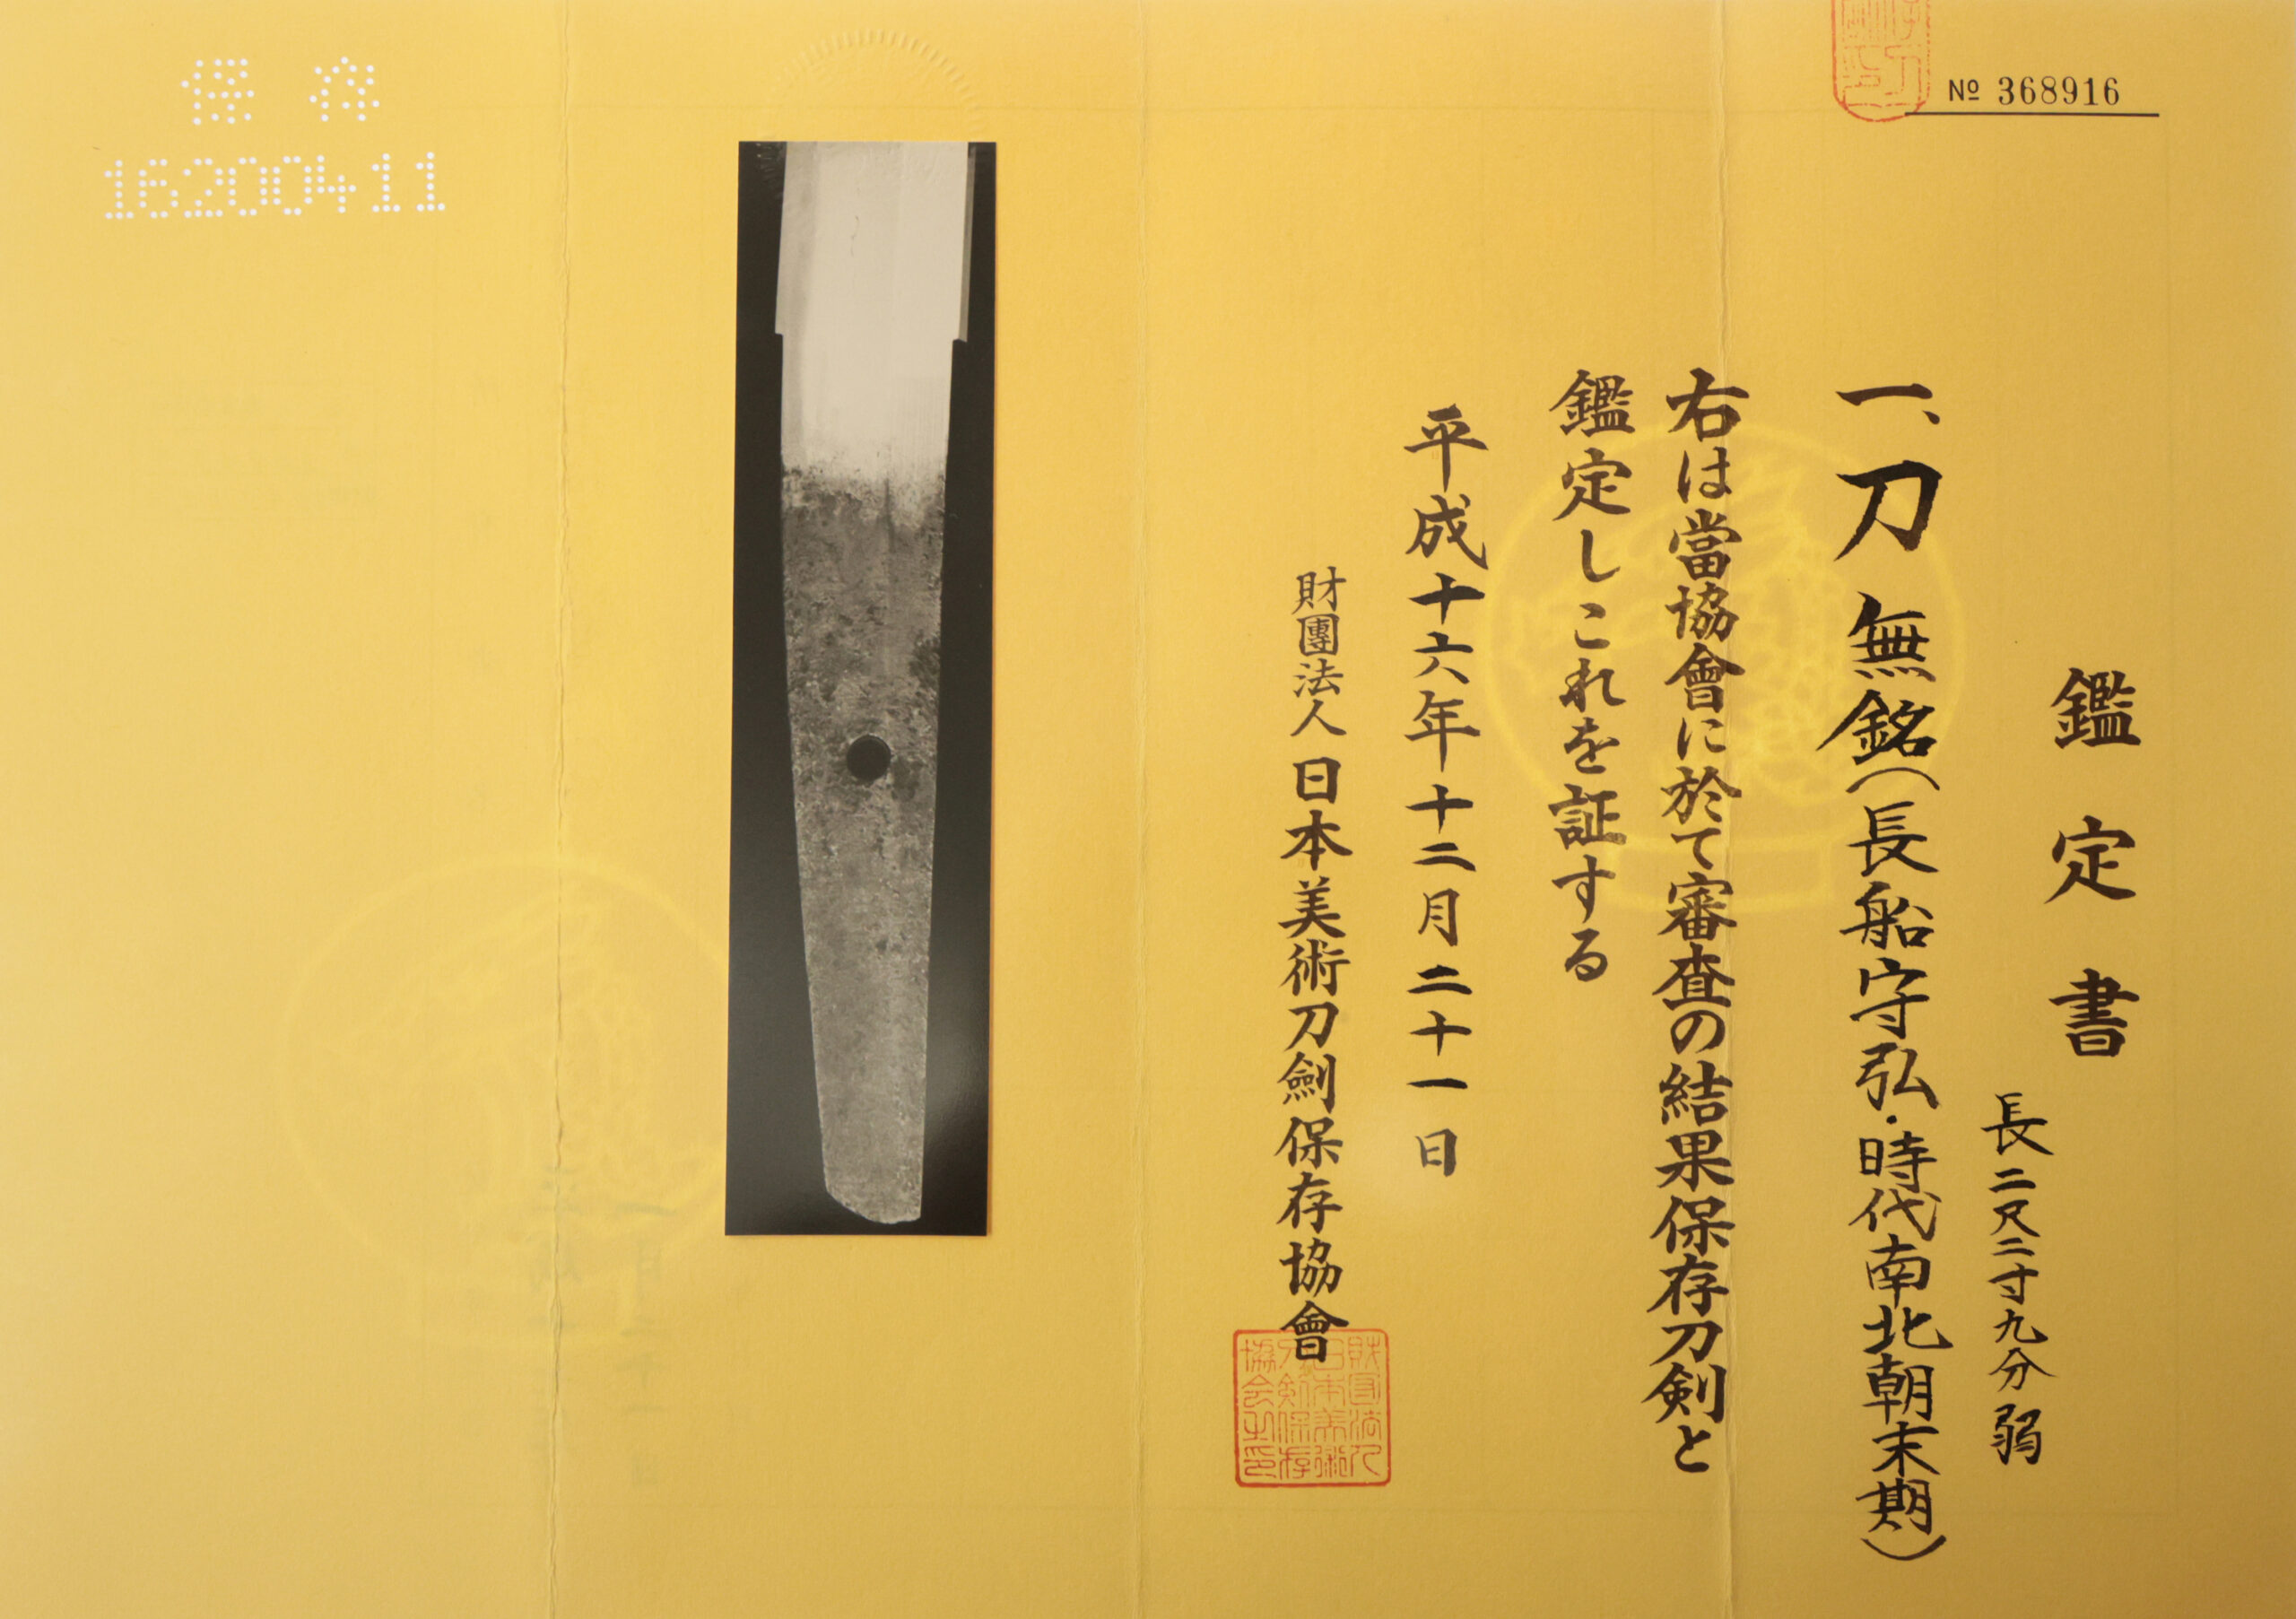 № 368916
鑑定書
長二尺二寸九分弱
一、刀 無銘(長船守弘・時代南北朝末期)
右は當協會に於て審査の結果保存刀剣と
鑑定しこれを証する
平成十六年十二月二十一日
財團法人 日本美術刀劍保存協會
財団法人
日本美術
刀剣保存
協会之印
保存
16200411